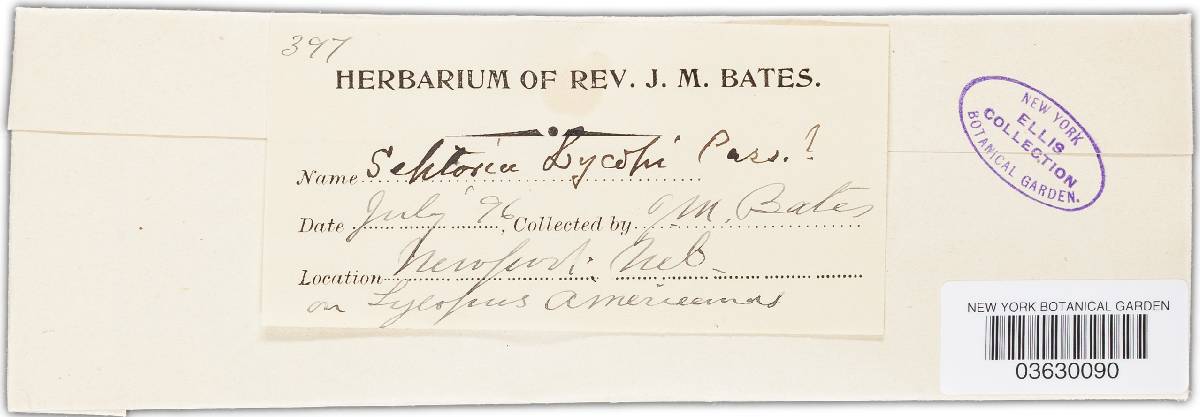 397
HERBARIUM OF REV. J. M. BATES.
Name Septoria Lycopi Pass. !
Date July 96, Collected by J M. Bates
Location Newport. Neb
on Lycopus Americanus
NEW YORK
ELLIS
COLLECTION
BOTANICAL GARDEN.
NEW YORK BOTANICAL GARDEN
03630090